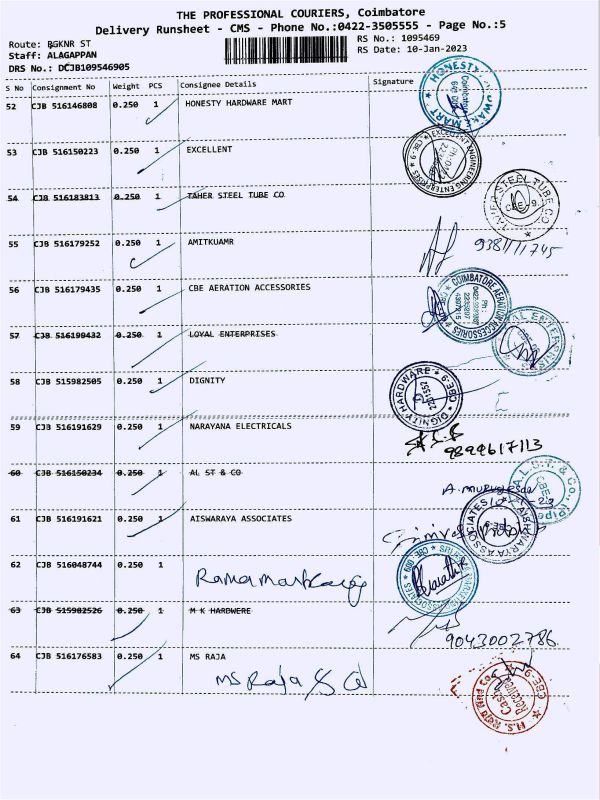 THE PROFESSIONAL COURIERS, Coimbatore
Delivery Runsheet - CMS - Phone No.:0422-3505555 - Page No.:5
Route: BGKNR ST
RS No.: 1095469
Staff: ALAGAPPAN
RS Date: 10-Jan-2023
DRS No.: DCJB109546905
S No Consignment No Weight PCS Consignee Details Signature
52 CJB 516146808 0.250 1 HONESTY HARDWARE MART
53 CJB 516150223 0.250 1 EXCELLENT
EXCELLENT ENGINEERING ENTERPRISES CBE-9
54 CJB 516183813 0.250 1 TAHER STEEL TUBE CO
TAHER STEEL TUBE CO. CBE-9.
55 CJB 516179252 0.250 1 AMITKUAMR
56 CJB 516179435 0.250 1 CBE AERATION ACCESSORIES
COIMBATORE AERATION ACCESSORIES
57 CJB 516190432 0.250 1 LOYAL ENTERPRISES
58 CJB 515982505 0.250 1 DIGNITY
DIGNITY HARDWARE CBE-9
59 CJB 516191629 0.250 1 NARAYANA ELECTRICALS
9899617113
60 CJB 516150234 0.250 1 AL ST & CO
61 CJB 516191621 0.250 1 AISWARAYA ASSOCIATES
AISHWARYA ASSOCIATES CBE-9
62 CJB 516048744 0.250 1
63 CJB 515982526 0.250 1 M K HARDWERE
9043002786
64 CJB 516176583 0.250 1 MS RAJA
MS Raja & Co
Cash Received